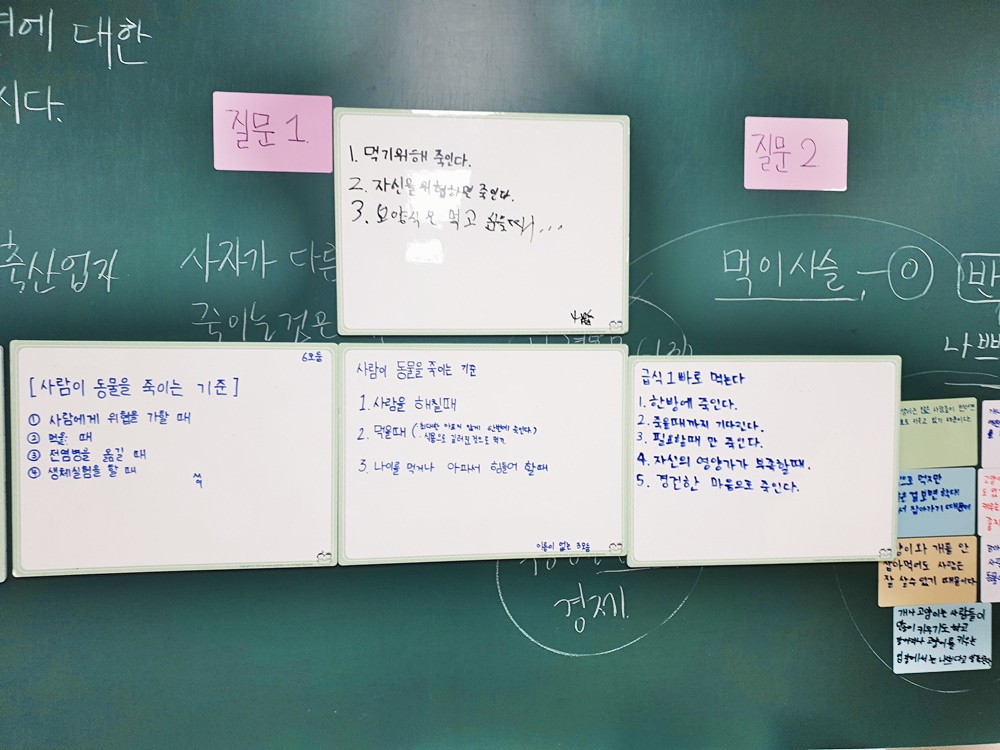 에 대한
시다.
질문 1
1. 먹기위해 죽인다.
2. 자신을 위협하면 죽인다.
3. 보양식은 먹고 싶을때...
질문 2
축산업자
사자가 다른
죽이는것은
먹이사슬,
반
나쁘
6모둠
[사람이 동물을 죽이는 기준]
① 사람에게 위협을 가할 때
② 먹을 때
③ 전염병을 옮길 때
④ 생체실험을 할 때
사람이 동물을 죽이는 기준
1. 사람을 해칠때
2. 먹을때 (최대한 아프지 않게 한번에 죽인다)
식용으로 길러진것으로 먹기
3. 나이를 먹거나 아파서 힘들어 할때
이름이 없는 3모둠
급식 1빠로 먹는다
1. 한방에 죽인다.
2. 죽을때까지 기다린다.
3. 필요할때 만 죽인다.
4. 자신의 영양가가 부족할때.
5. 경건한 마음으로 죽인다.
경제
으로 먹지만
서 잡아가기 때문에
양이와 개를 안
잡아먹어도 사람은
잘 살수 있기 때문이다
개나 고양이는 사람들이
많이 키우기도 하고